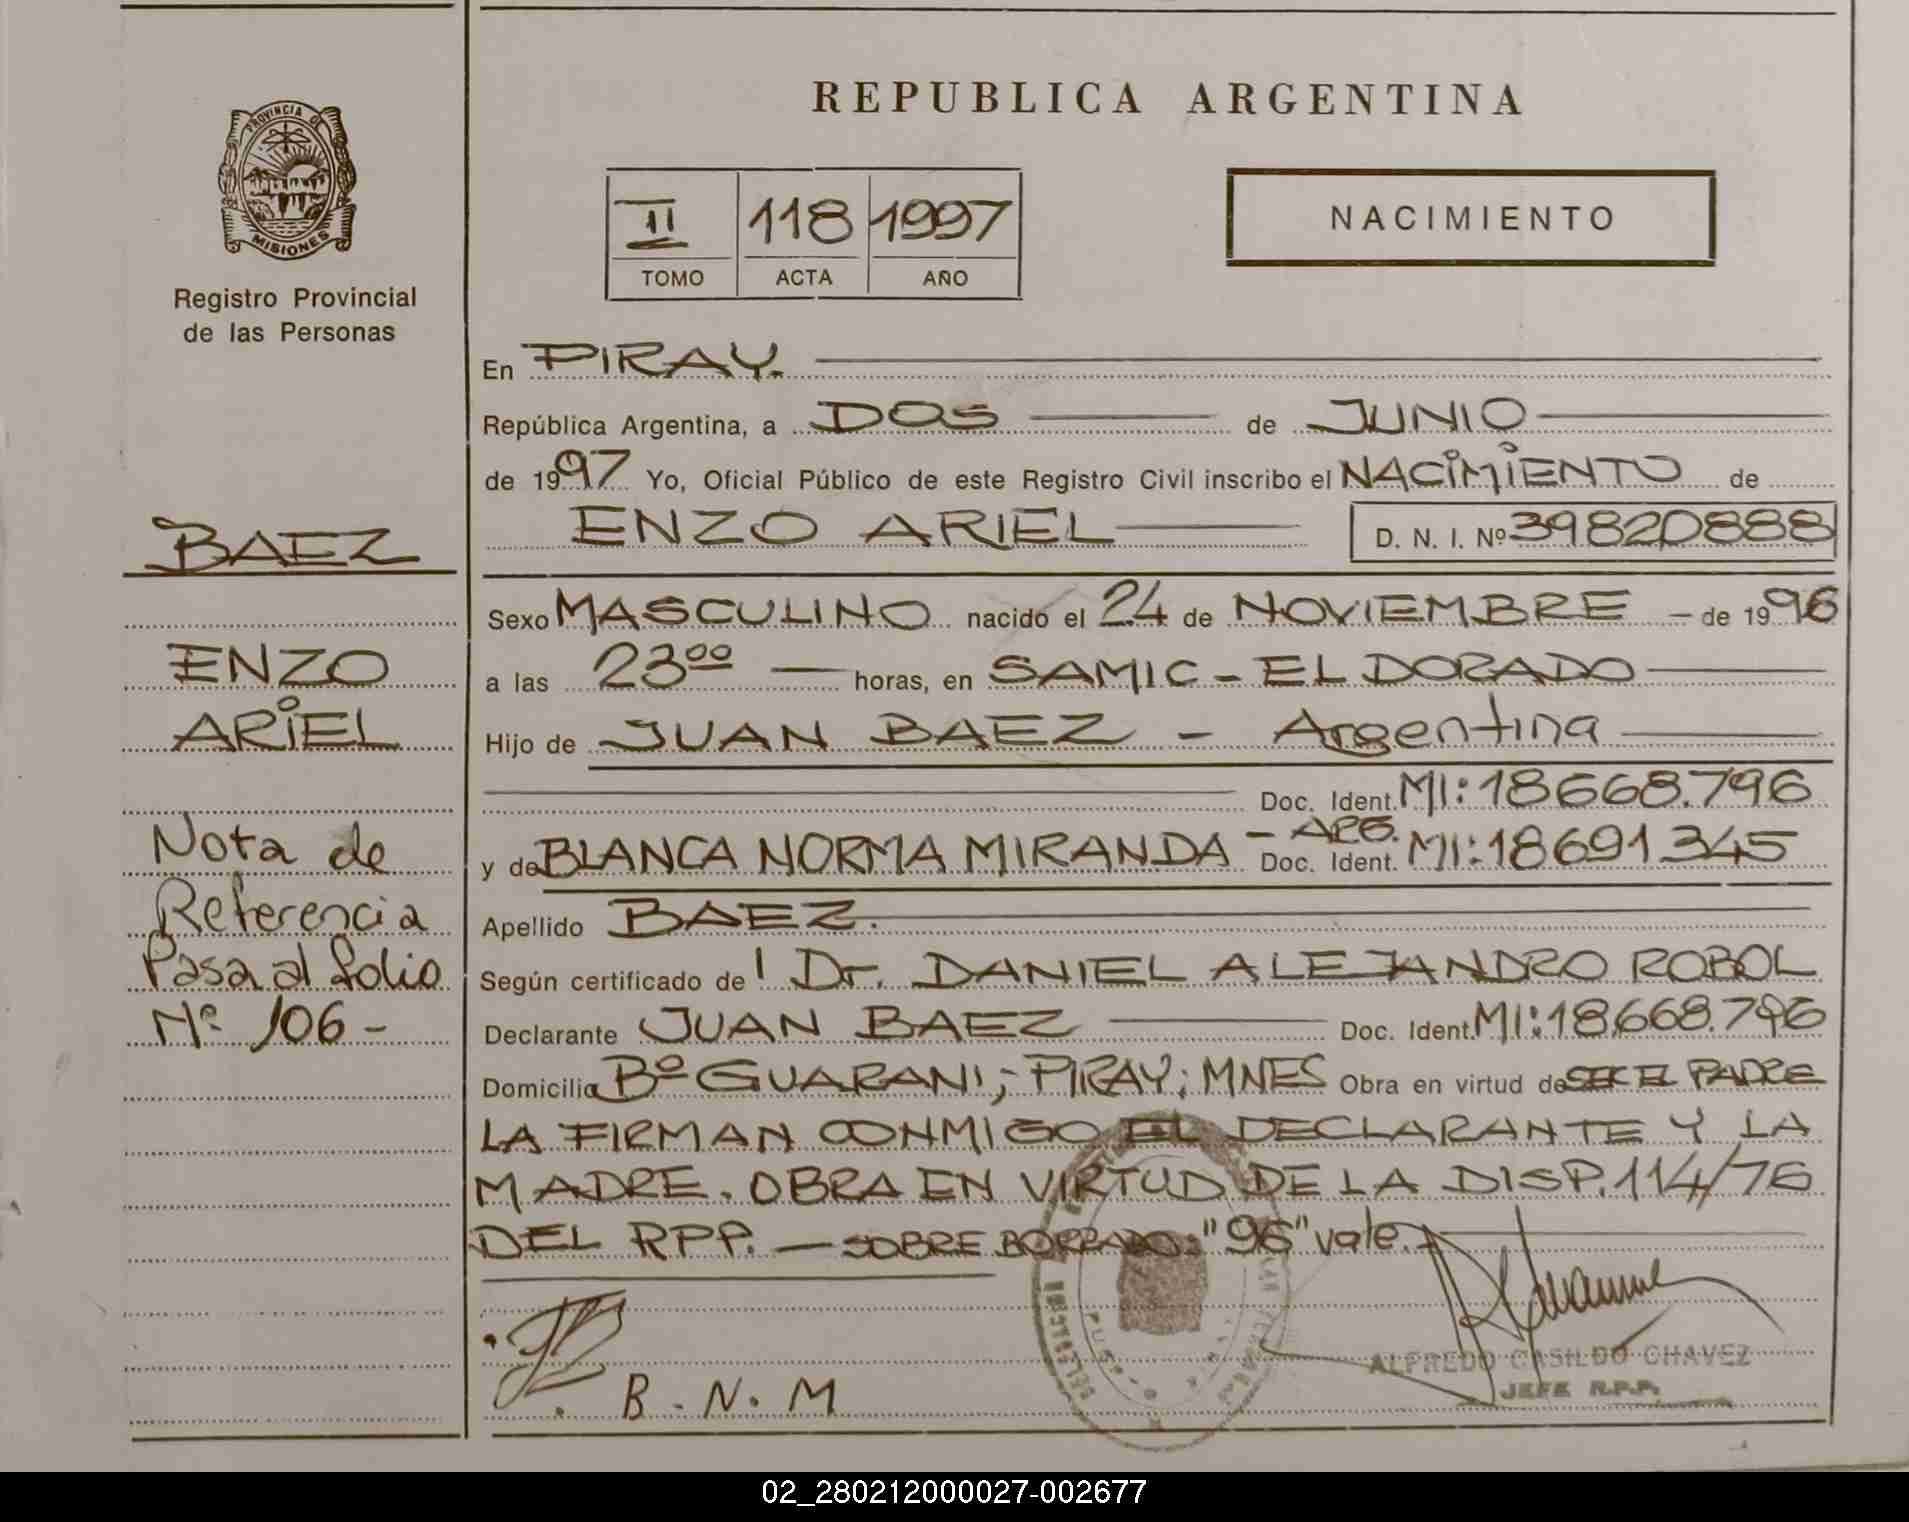 PROVINCIA DE
MISIONES
Registro Provincial
de las Personas
BAEZ
ENZO
ARIEL
Nota de
Referencia
Pasa al folio
Nº 106 -
REPUBLICA ARGENTINA
II 118 1997
TOMO ACTA AÑO
NACIMIENTO
En PIRAY.
República Argentina, a DOS de JUNIO
de 1997 Yo, Oficial Público de este Registro Civil inscribo el NACIMIENTO de
ENZO ARIEL D. N. I. Nº 39820888
Sexo MASCULINO nacido el 24 de NOVIEMBRE - de 1996
a las 23⁰⁰ horas, en SAMIC - ELDORADO
Hijo de JUAN BAEZ - Argentina
Doc. Ident. MI: 18668.796
y de BLANCA NORMA MIRANDA - ARG. Doc. Ident. MI: 18691345
Apellido BAEZ.
Según certificado de l Dr. DANIEL ALEJANDRO ROBOL
Declarante JUAN BAEZ Doc. Ident. MI: 18.668.796
Domicilio Bº GUARANI; PIRAY; MNES Obra en virtud de SER EL PADRE
LA FIRMAN CONMIGO EL DECLARANTE Y LA
MADRE. OBRA EN VIRTUD DE LA DISP. 114/76
DEL RPP. — SOBRE BORRADO: "96" vale.
B. N. M
ALFREDO CASILDO CHAVEZ
JEFE R.P.P.
02_280212000027-002677